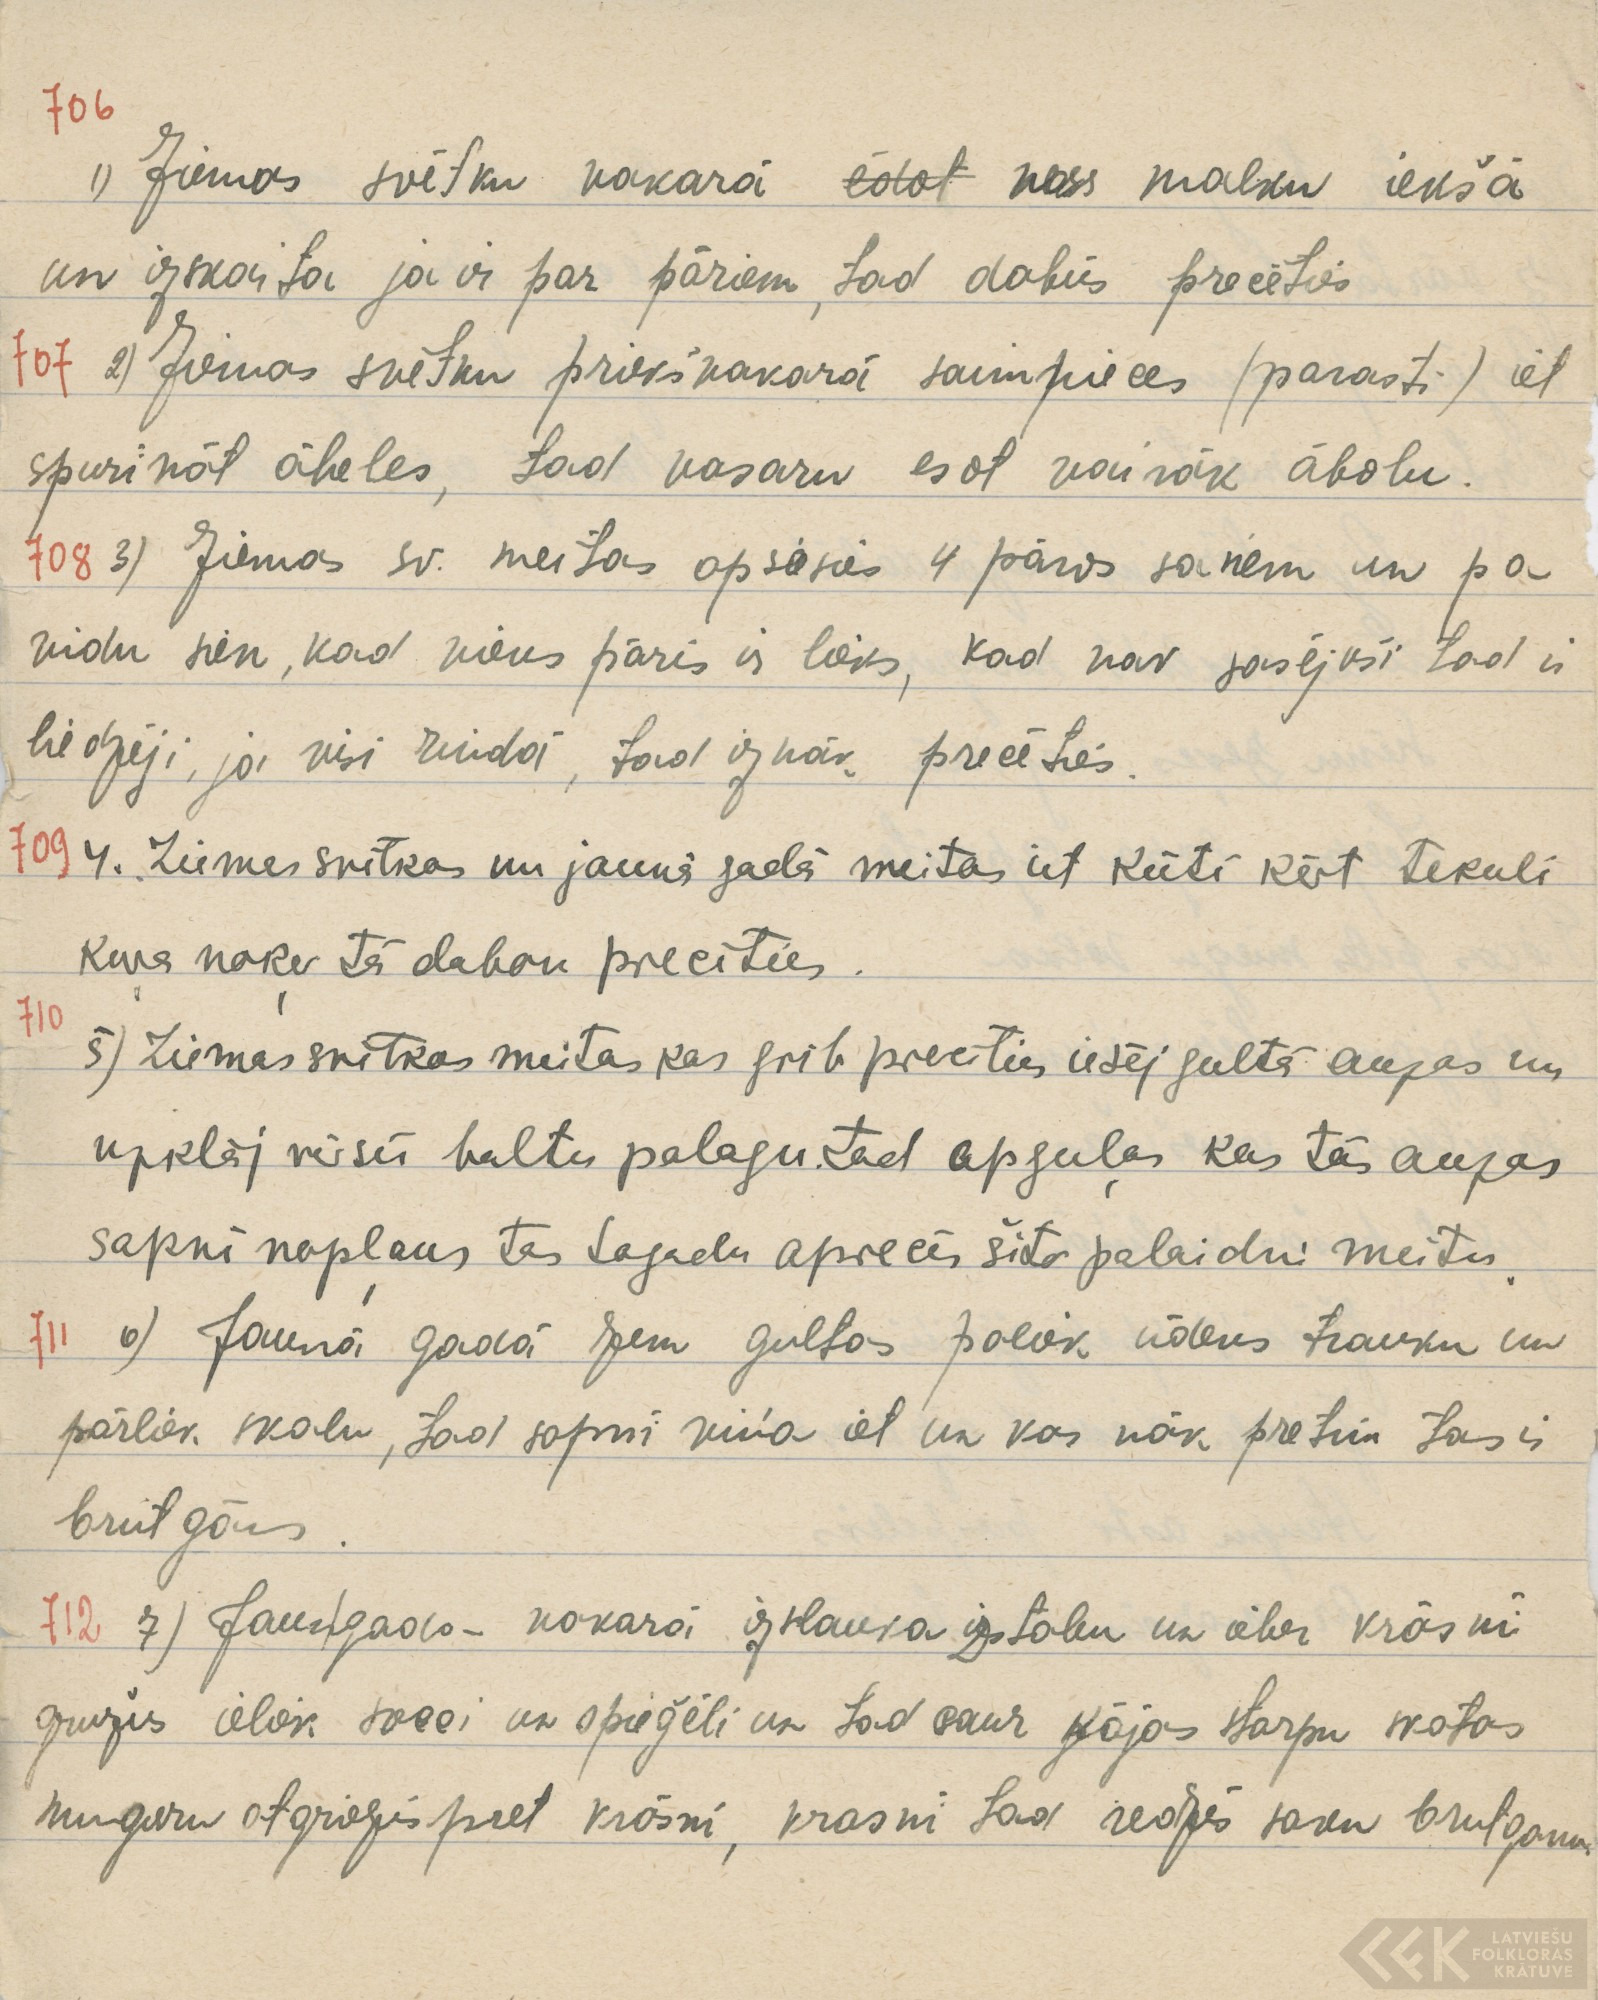 706
1) Ziemas svētku vakarā ēdot ness malku iekšā
un izskaita ja ir par pāriem, tad dabūs precēties
707 2) Ziemas svētku priekšvakarā saimnieces (parasti) iet
spurināt ābeles, tad vasaru esot vairāk ābolu.
708 3) Ziemas sv. meitas apsēsies 4 pāros saņem un pa
vidu sien, kad viens pāris ir lieks, kad nav sasējuši tad ir
liedzēji, ja visi rindā, tad iznāk precēties.
709 4. Ziemassvētkos un jaunā gadā meitas iet kūtī ķert tekuli
kuŗa noķeŗ tā dabon precēties.
710
5) Ziemassvētkos meitas kas grib precēties iesēj gultā auzas un
uzklāj virsū baltu palagu. tad apguļas kas tās auzas
sapnī nopļaus tas tagadu aprecēs šito palaidni meitu.
711 6) Jaunā gadā zem gultas paliek ūdens trauku un
pārliek skalu, tad sapnī viņa iet un kas nāk pretim tas ir
brūtgāns.
712 7) Jaungada- vakarā izslauka istabu un ieber krāsnī
gružus ieliek sveci un spieģēli un tad caur kājas starpu skatas
muguru atgriezis pret krāsni, krasni tad redzēs savu brutganu
LATVIEŠU
FOLKLORAS
KRĀTUVE